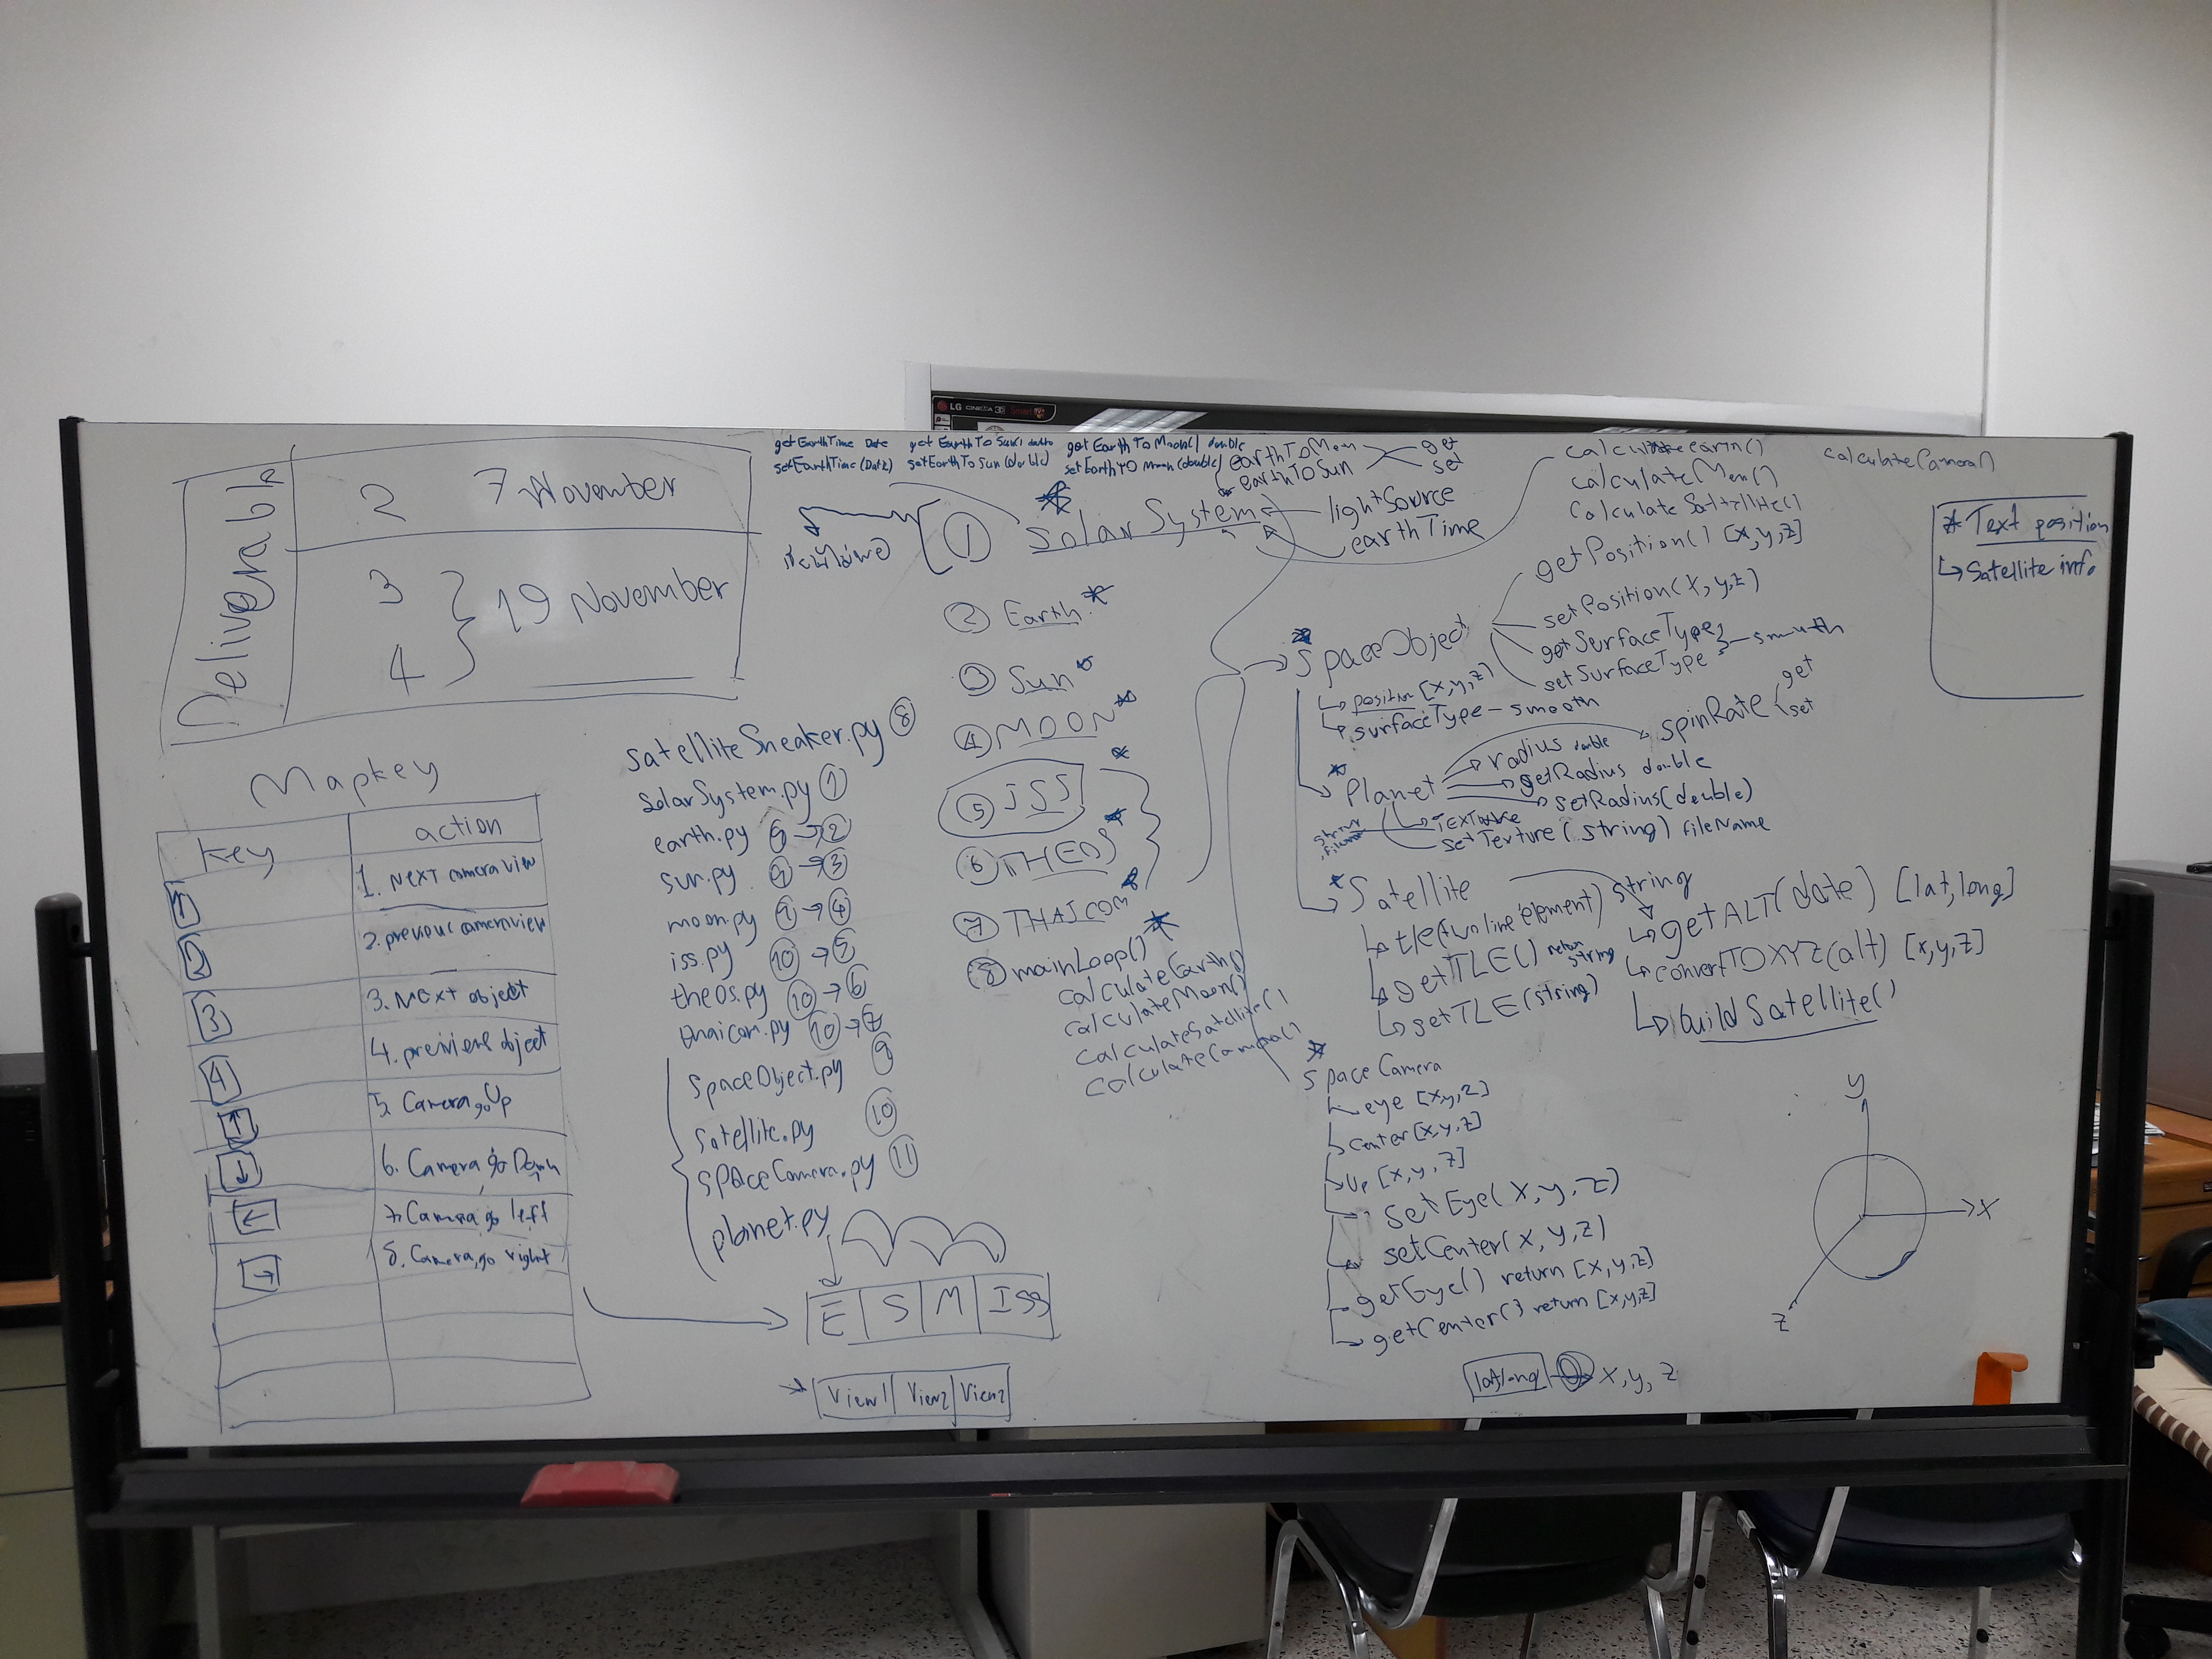 LG CINEMA 3D Smart TV
Deliverable
2 7 November
3
4
19 November
Mapkey
Key action
1 1. Next camera view
2 2. previous cameraview
3 3. Next object
4 4. previous object
↑ 5. Camera go Up
↓ 6. Camera go Down
← 7. Camera go left
→ 8. Camera go right
satelliteSneaker.py 8
solarSystem.py 1
earth.py 9 → 2
sun.py 9 → 3
moon.py 9 → 4
iss.py 10 → 5
theos.py 10 → 6
thaicom.py 10 → 7
spaceObject.py 9
satellite.py 10
spaceCamera.py 11
planet.py
E S M ISS
View1 View2 View2
getEarthTime Date
setEarthTime(Date)
get EarthTo Sun() double
setEarthTo Sun (double)
get EarthTo Moon() double
set EarthTO Moon (double)
earthToMoon
earthToSun
get
set
1 Solar System
lightSource
earthTime
2 Earth
3 Sun
4 MOON
5 ISS
6 THEOS
7 THAICOM
8 mainLoop()
calculateEarth()
calculateMoon()
calculateSatellite()
calculateCamera()
calculateEarth()
calculateMoon()
calculateSatellite()
calculateCamera()
SpaceObject
↳ position [x,y,z]
↳ surfaceType - smooth
getPosition() [x,y,z]
setPosition(x,y,z)
getSurfaceType
setSurfaceType
smooth
Planet
radius double
spinRate
get
set
getRadius double
setRadius(double)
setTexture(string) fileName
Satellite
↳ tle(two line element) string
↳ getTLE() return string
↳ setTLE(string)
↳ getALT(date) [lat,long]
↳ convertTOXYZ(alt) [x,y,z]
↳ build Satellite()
Space Camera
↳ eye [x,y,z]
↳ center [x,y,z]
↳ Up [x,y,z]
setEye(x,y,z)
setCenter(x,y,z)
getEye() return [x,y,z]
getCenter() return [x,y,z]
lat,long x, y, z
* Text position
↳ Satellite info
y
x
z